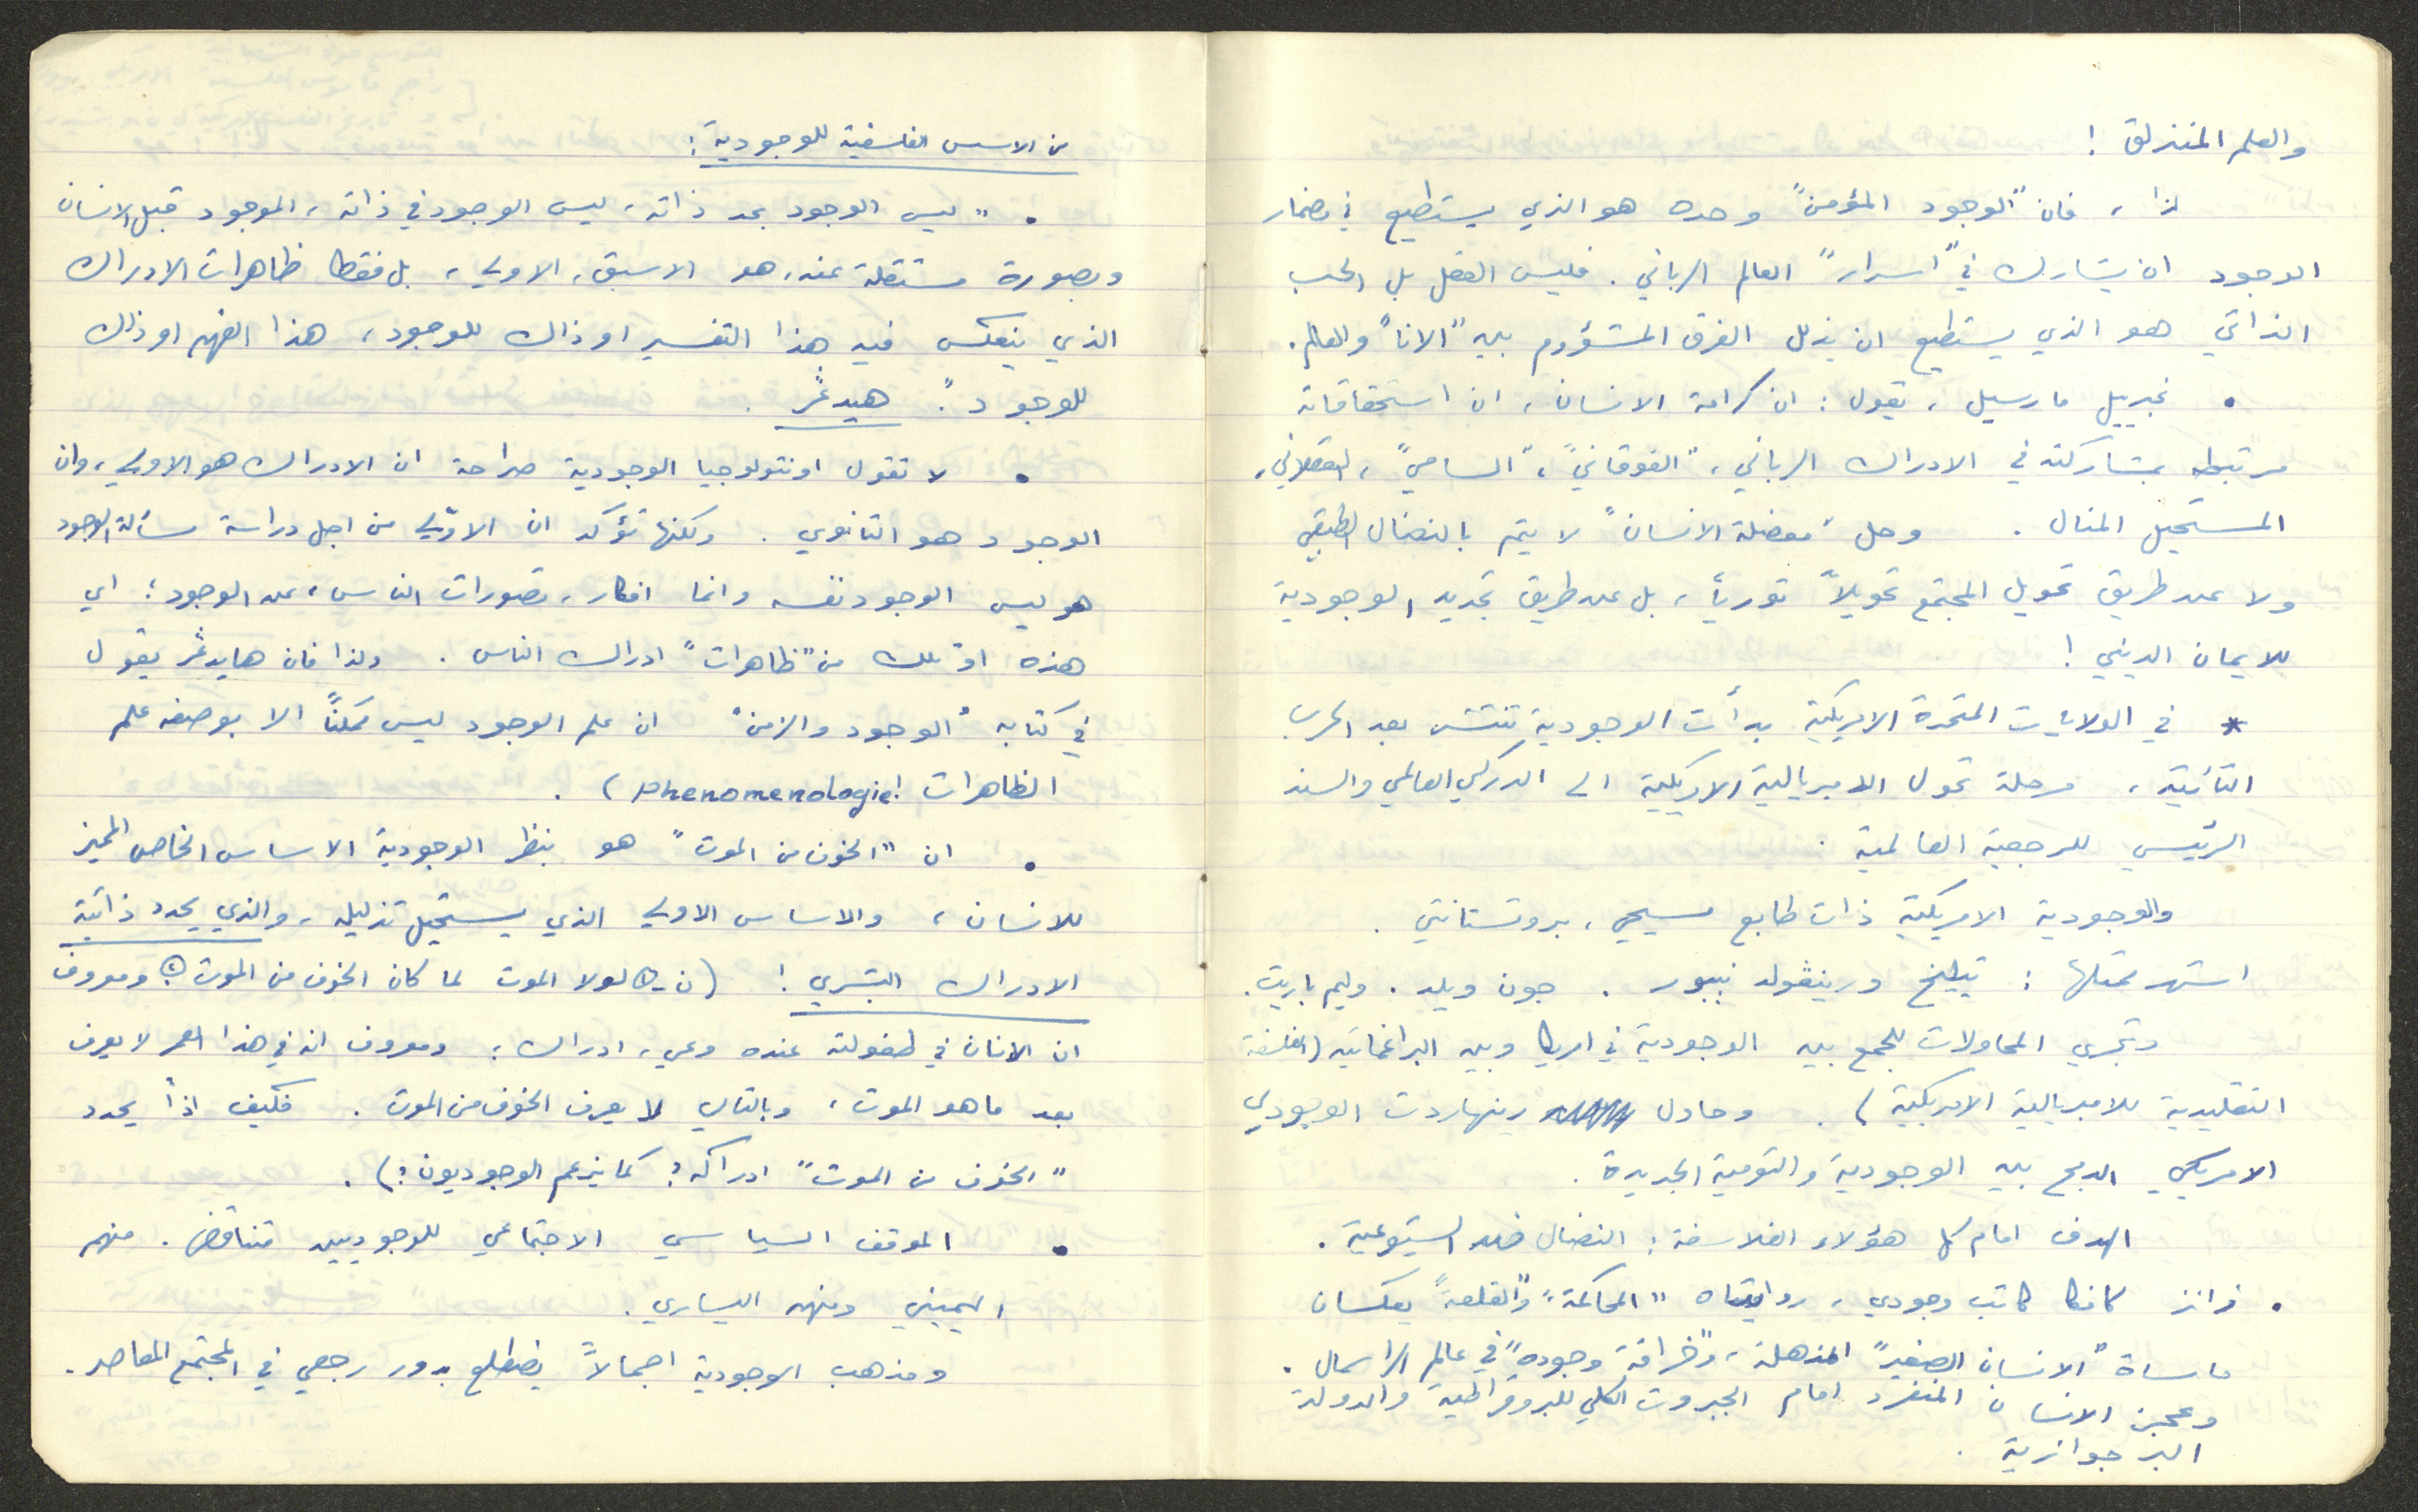 والعلم المنزلق !
لذا ، فان "الوجود المؤمن" وحده هو الذي يستطيع في مضمار
الوجود ان يشارك في "اسرار" العالم الرباني . فليس العقل بل الحب
الذاتي هو الذي يستطيع ان يذلل الفرق المشؤوم بين "الانا" والعالم .
• غبرييل مارسيل ، يقول : ان كرامة الانسان ، ان استحقاقاته
مرتبطه بمشاركته في الادراك الرباني ، "الفوقاني" ، "السامي" ، العقلاني ،
المستحيل المنال . وحل "معضلة الانسان" لا يتم بالنضال الطبقي
ولا عن طريق تحويل المجتمع تحويلاً ثورياً ، بل عن طريق تجديد الوجودية
للايمان الديني !
* في الولايات المتحدة الامريكية بدأت الوجودية تنتشر بعد الحرب
الثانية ، مرحلة تحول الامبريالية الامريكية الى الدركي العالمي والسند
الرئيسي للرجعية العالمية .
والوجودية الامريكية ذات طابع مسيحي ، بروتستانتي .
اشهر ممثلها : تيليخ ورينڤولد نيبور . جون ويلد . وليم باريت .
وتجري المحاولات للجمع بين الوجودية في امريكا وبين البراغماتية (الفلسفة
التقليدية للامبريالية الامريكية) . وحاول رينهاردت الوجودي
الامريكي الدمج بين الوجودية والتومية الجديدة .
الهدف امام كل هؤلاء الفلاسفة : النضال ضد الشيوعية .
• فرانز كافكا كاتب وجودي ، روايتاه "المحاكمة" و"القلعة" يعكسان
ماساة "الانسان الصغير" المذهلة ، و"خرافة وجوده" في عالم الراسمال .
وعجز الانسان المنفرد امام الجبروت الكلي للبروقراطية والدولة
البرجوازية .
من الاسس الفلسفية للوجودية :
• "ليس الوجود بحد ذاته ، ليس الوجود في ذاته ، الموجود قبل الانسان
وبصورة مستقلة عنه ، هو الاسبق ، الاولي ، بل فقط ظاهرات الادراك
الذي ينعكس فيه هذا التفسير او ذاك للوجود ، هذا الفهم او ذاك
للوجود" . هيدغر .
• لا تقول اونتولوجيا الوجودية صراحة ان الادراك هو الاولي ، وان
الوجود هو الثانوي . ولكنها تؤكد ان الاوّلي من اجل دراسة مسألة الوجود
هو ليس الوجود نفسه وانما افكار ، تصورات الناس ، عن الوجود ؛ اي
هذه او تلك من "ظاهرات" ادراك الناس . ولذا فان هايدغر يقول
في كتابه "الوجود والزمن" ان علم الوجود ليس ممكناً الا بوصفه علم
الظاهرات (phenomenologie) .
• ان "الخوف من الموت" هو بنظر الوجودية الاساس الخاص المميز
للانسان ، والاساس الاولي الذي يستحيل تذليله ، والذي يحدد ذاتية
الادراك البشري ! ( لولا الموت لما كان الخوف من الموت ومعروف
ان الانسان في طفولته عنده وعي ، ادراك ؛ ومعروف انه في هذا العمر لا يعرف
بعد ما هو الموت ، وبالتالي لا يعرف الخوف من الموت . فكيف اذاً يحدد
"الخوف من الموت" ادراكه ؟ كما يزعم الوجوديون ؟) .
• الموقف السياسي الاجتماعي للوجوديين متناقض . منهم
اليميني ومنهم اليساري .
ومذهب الوجودية اجمالاً يضطلع بدور رجعي في المجتمع المعاصر .